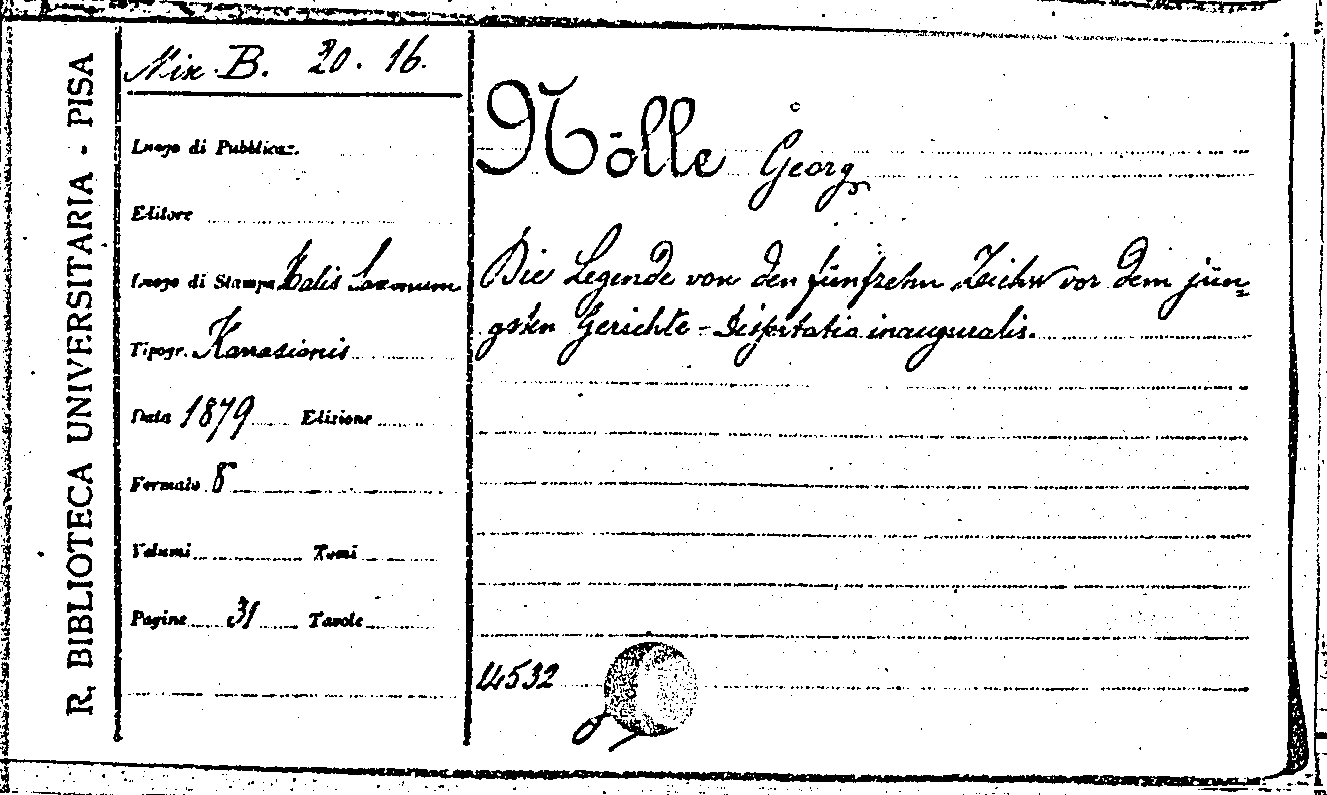 R. BIBLIOTECA UNIVERSITARIA - PISA
Mix. B. 20. 16.
Luogo di Pubblicaz.
Editore
Luogo di Stampa Halis Saxonum
Tipogr. Karrasionis
Data 1879 Edizione
Formato 8
Volumi Tomi
Pagine 31 Tavole
Nölle Georg
Die Legende von den fünfzehn Zeichen vor dem jün=
gsten Gerichte - Dissertatio inauguralis.
4532